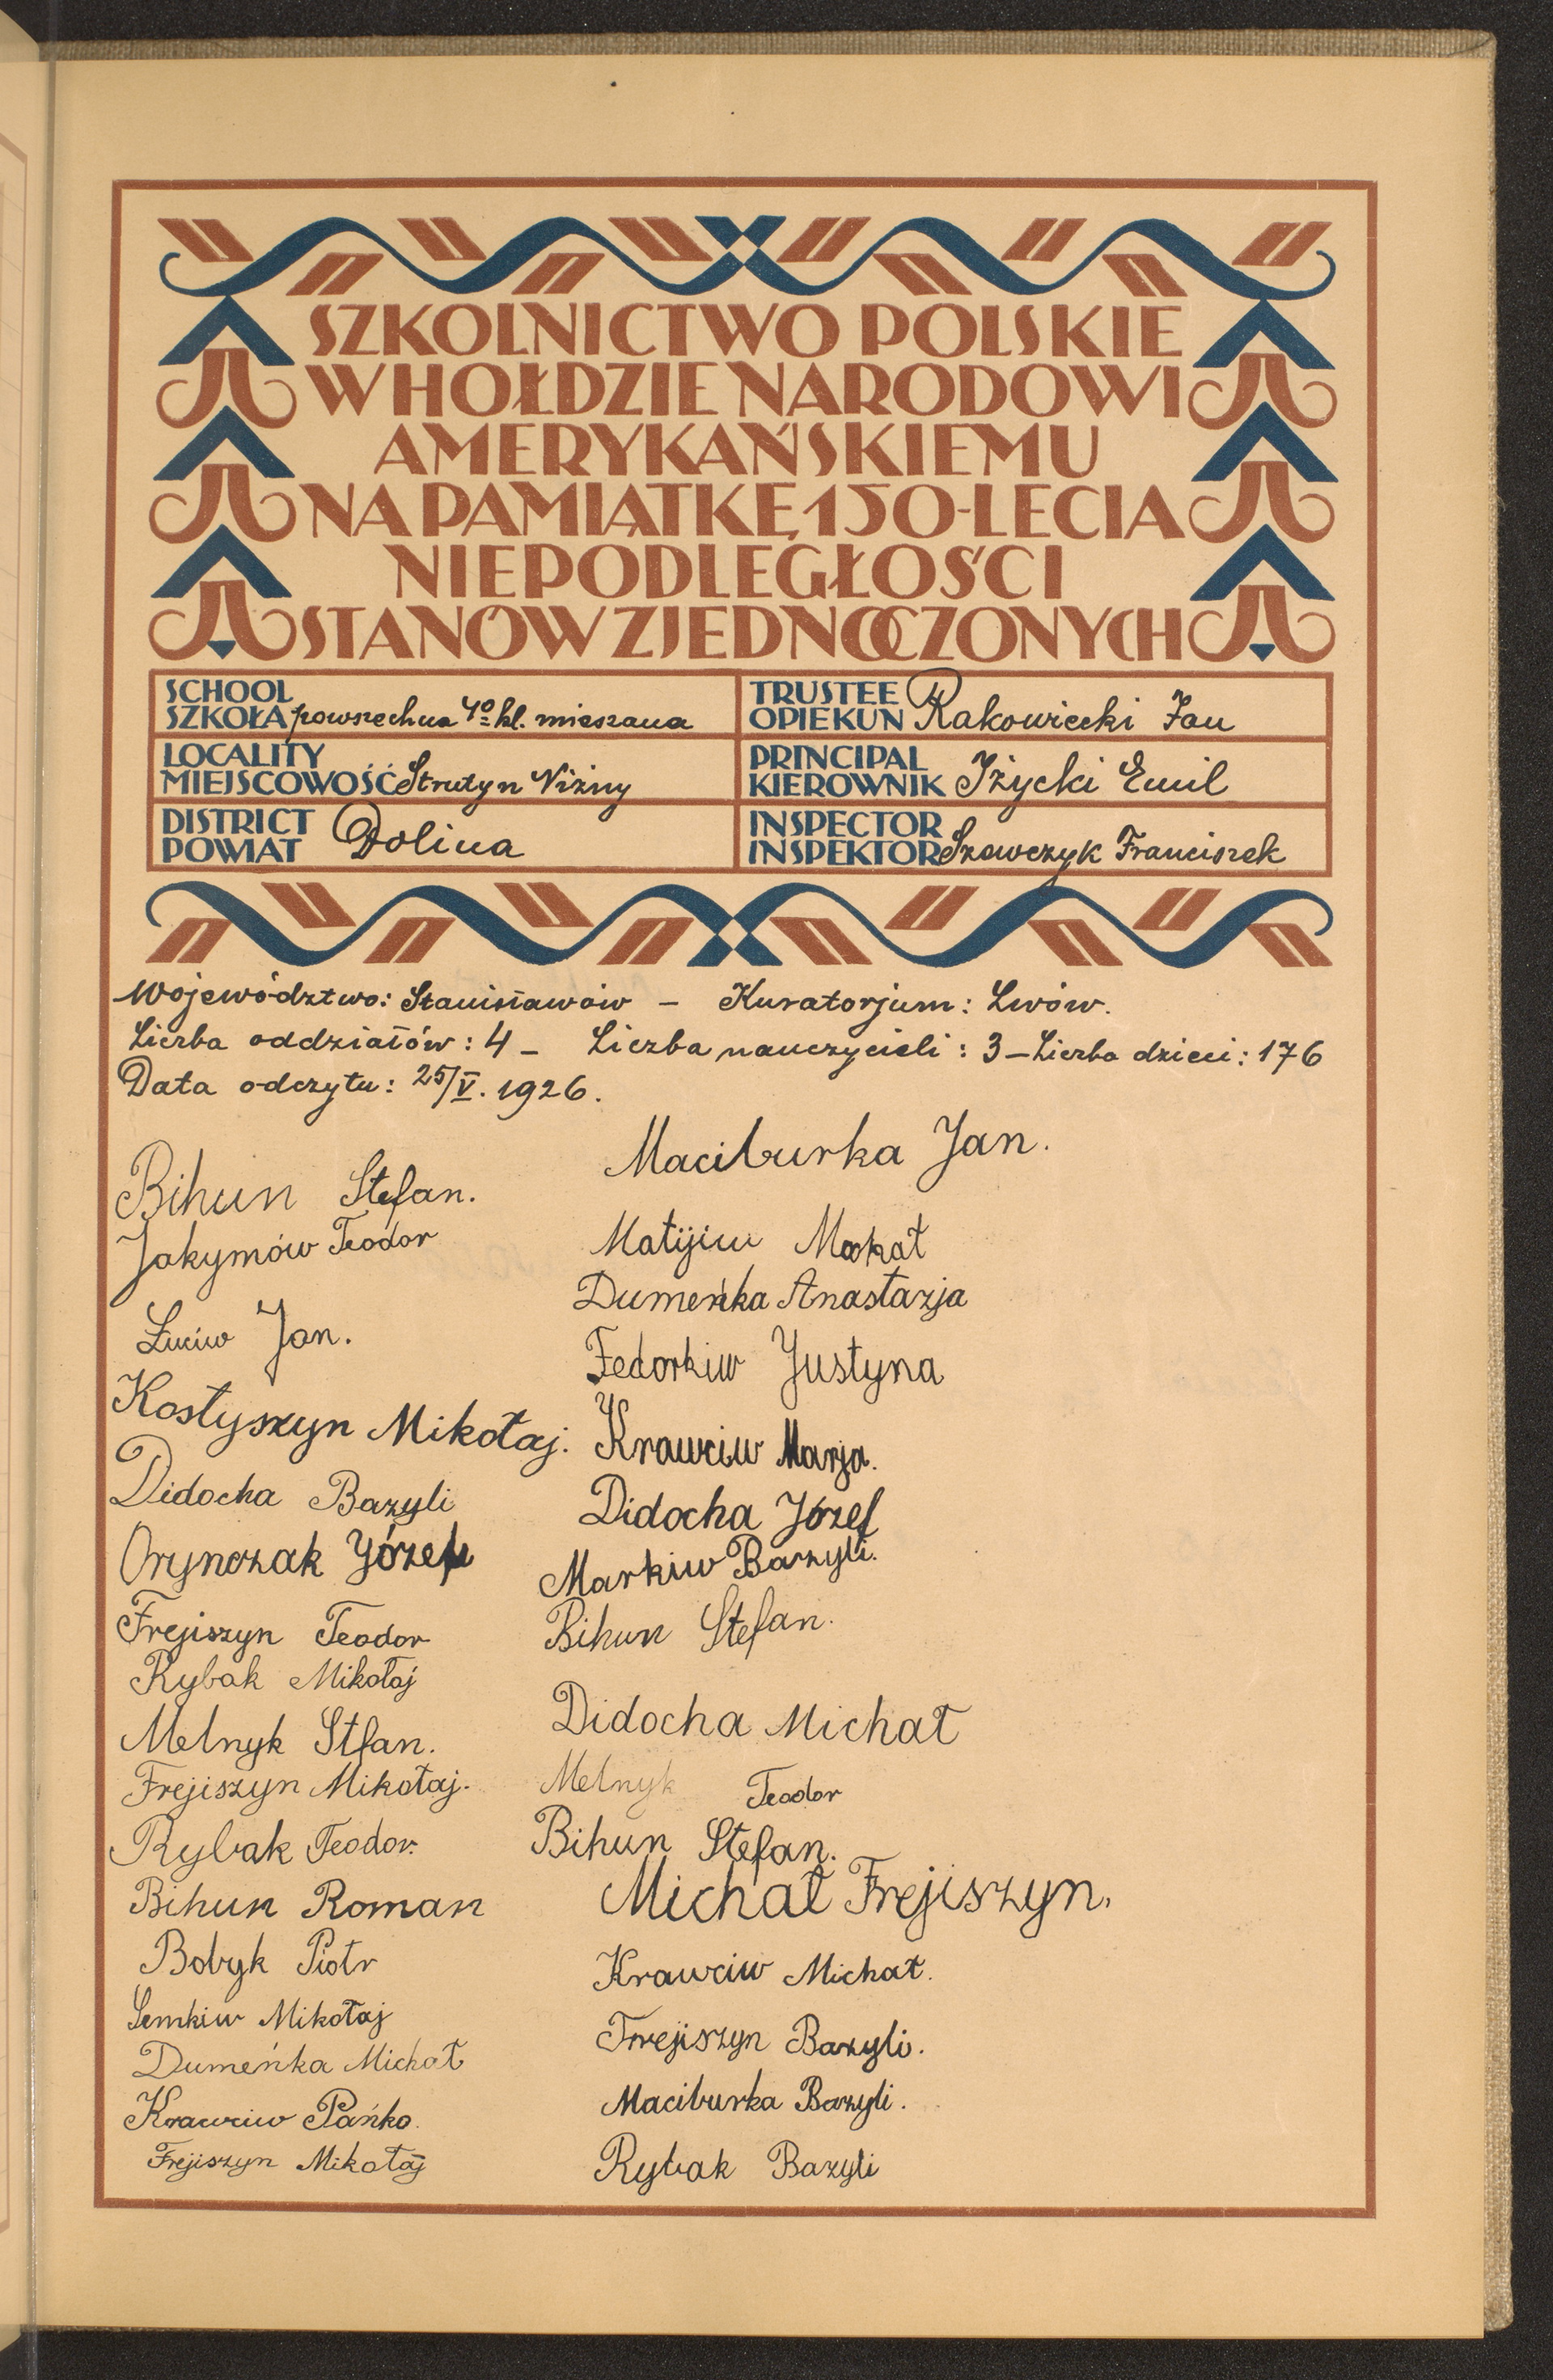 SZKOLNICTWO POLSKIE
W HOŁDZIE NARODOWI
AMERYKAŃSKIEMU
NA PAMIĄTKĘ 150-LECIA
NIEPODLEGŁOŚCI
STANÓW ZJEDNOCZONYCH
SCHOOL
SZKOŁA powszechna 4o kl. mieszana
LOCALITY
MIEJSCOWOŚĆ Strutyn Niżny
DISTRICT
POWIAT Dolina
TRUSTEE
OPIEKUN Rakowiecki Jan
PRINCIPAL
KIEROWNIK Iżycki Emil
INSPECTOR
INSPEKTOR Szewczyk Franciszek
Województwo: Stanisławów – Kuratorjum: Lwów.
Liczba oddziałów: 4 – Liczba nauczycieli: 3 – Liczba dzieci: 176
Data odczytu: 25/V. 1926.
Bihun Stefan.
Jakymów Teodor
Luciw Jan.
Kostyszyn Mikołaj.
Didocha Bazyli
Orynczak Józef
Frejiszyn Teodor
Rybak Mikołaj
Melnyk Stfan.
Frejiszyn Mikołaj.
Rybak Teodor.
Bihun Roman
Bobyk Piotr
Semkiw Mikołaj
Dumeńka Michał
Krawciw Pańko.
Frejiszyn Mikołaj
Maciburka Jan.
Matijiw
Dumeńka Anastazja
Fedorkiw Justyna
Krawciw Marja.
Didocha Józef
Markiw Bazyli.
Bihun Stefan.
Didocha Michał
Melnyk Teodor
Bihun Stefan.
Michał Frejiszyn.
Krawciw Michał.
Frejiszyn Bazyli.
Maciburka Bazyli.
Rybak Bazyli